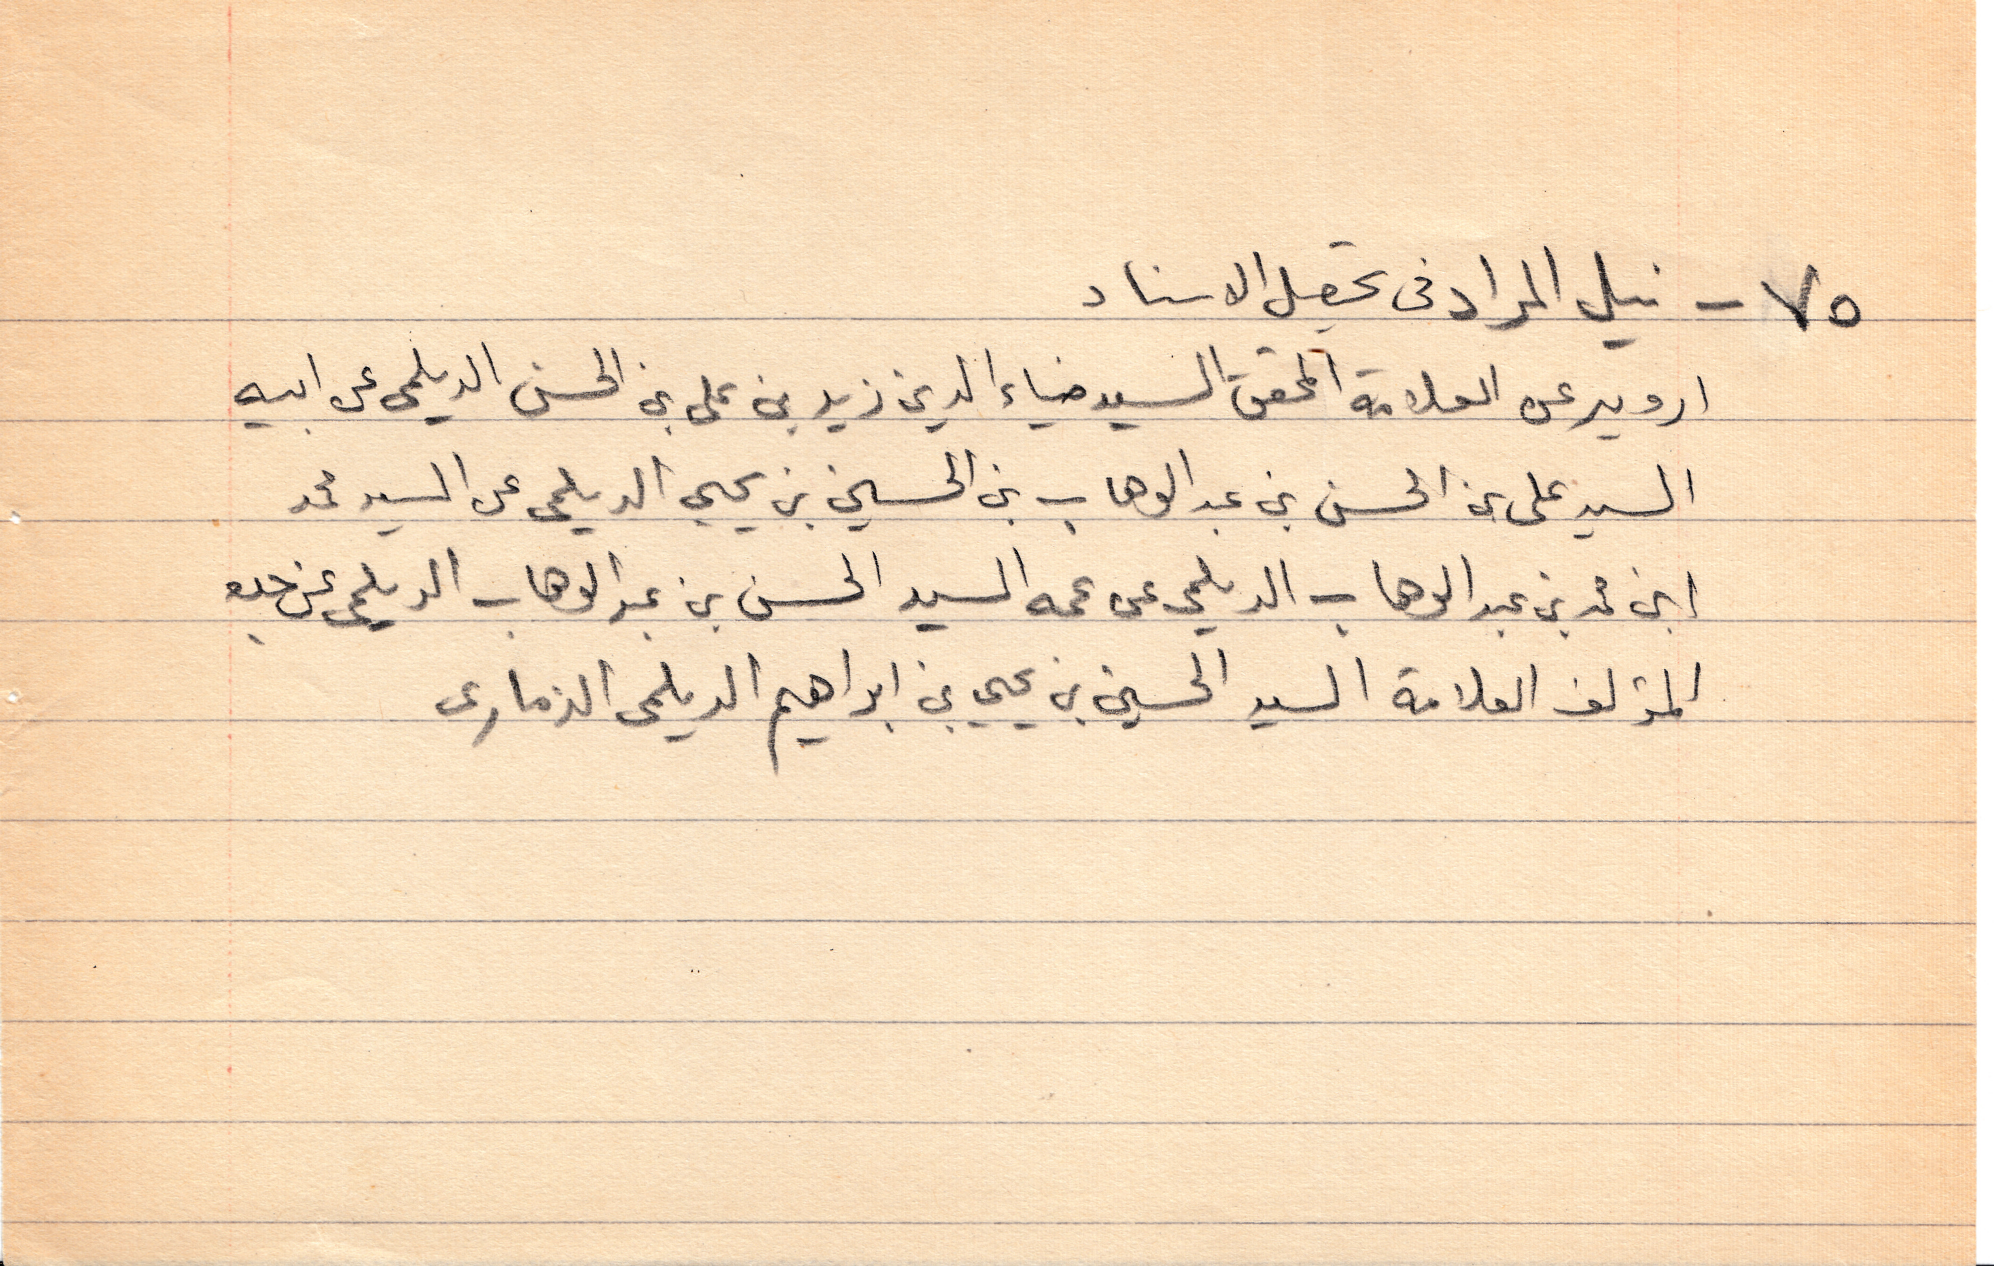 ٧٥ - نيل المراد فى تحصيل الاسناد
ارويه عن العلامة المحقق السيد ضياء الدين زيد بن على بن الحسن الديلمى عن ابيه
السيد على بن الحسن بن عبد الوهاب بن الحسين بن يحيى الديلمى عن السيد محمد
ابن محمد بن عبد الوهاب الديلمى عن عمه السيد الحسن بن عبد الوهاب الديلمى عن جده
المؤلف العلامة السيد الحسين بن يحيى بن ابراهيم الديلمى الذمارى